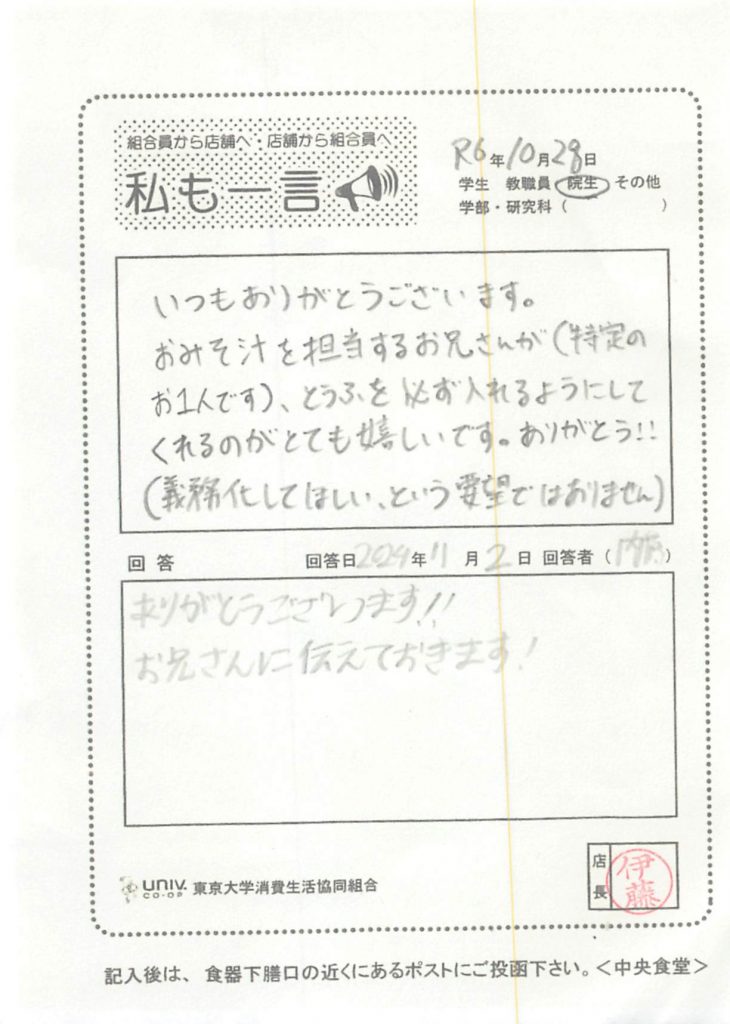 組合員から店舗へ・店舗から組合員へ
私も一言
R6年10月29日
学生 教職員 院生 その他
学部・研究科( )
いつもありがとうございます。
おみそ汁を担当するお兄さんが(特定の
お1人です)、とうふを必ず入れるようにして
くれるのがとても嬉しいです。ありがとう!!
(義務化してほしい、という要望ではありません)
回答 回答日2024年11月2日 回答者( )
ありがとうございます!!
お兄さんに伝えておきます!
UNIV. CO-OP 東京大学消費生活協同組合
店長 伊藤
記入後は、食器下膳口の近くにあるポストにご投函下さい。<中央食堂>